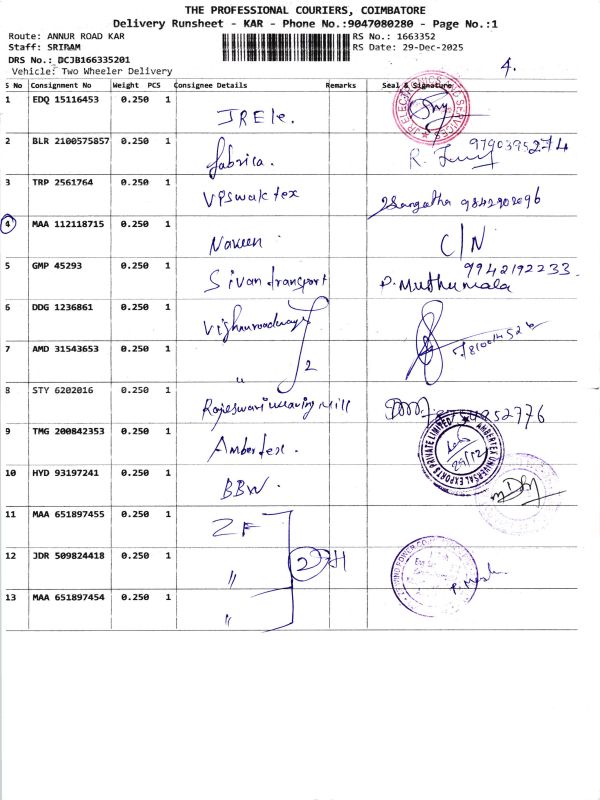 THE PROFESSIONAL COURIERS, COIMBATORE
Delivery Runsheet - KAR - Phone No.:9047080280 - Page No.:1
Route: ANNUR ROAD KAR RS No.: 1663352
Staff: SRIRAM RS Date: 29-Dec-2025
DRS No.: DCJB166335201
Vehicle: Two Wheeler Delivery 4.
S No Consignment No Weight PCS Consignee Details Remarks Seal & Signature
1 EDQ 15116453 0.250 1 JR Ele.
2 BLR 2100575857 0.250 1 fabrica. 9790395274
3 TRP 2561764 0.250 1 VPS
4 MAA 112118715 0.250 1 Naveen C/N
5 GMP 45293 0.250 1 Sivan transport 9942192233
P. Muthumala
6 DDG 1236861 0.250 1
7 AMD 31543653 0.250 1 " 2
8 STY 6202016 0.250 1 Rajeswari weaving mill
9 TMG 200842353 0.250 1 Ambertex. AMBERTEX UNIVERSAL EXPORTS PRIVATE LIMITED 29/12
10 HYD 93197241 0.250 1 BBW.
11 MAA 651897455 0.250 1 ZF
12 JDR 509824418 0.250 1 " 2
13 MAA 651897454 0.250 1 "